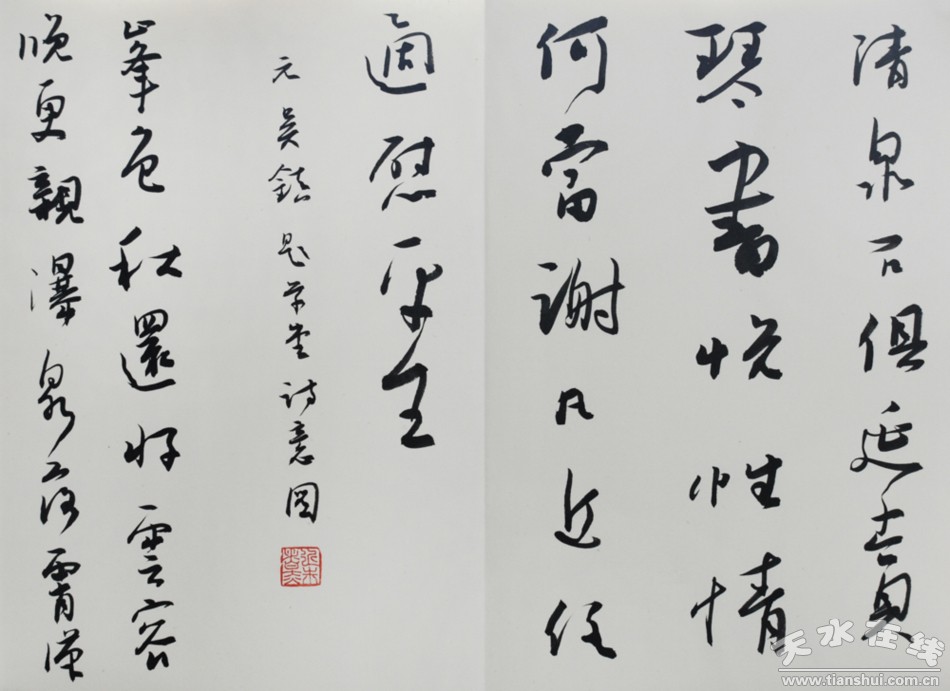 清泉石俱延賞
琴書悅性情
何當謝凡近任
適慰平生
元吳鎮題草堂詩意圖
峯色秋還好雲容
晚更親瀑泉落霄漢
天水在线
www.tianshui.com.cn